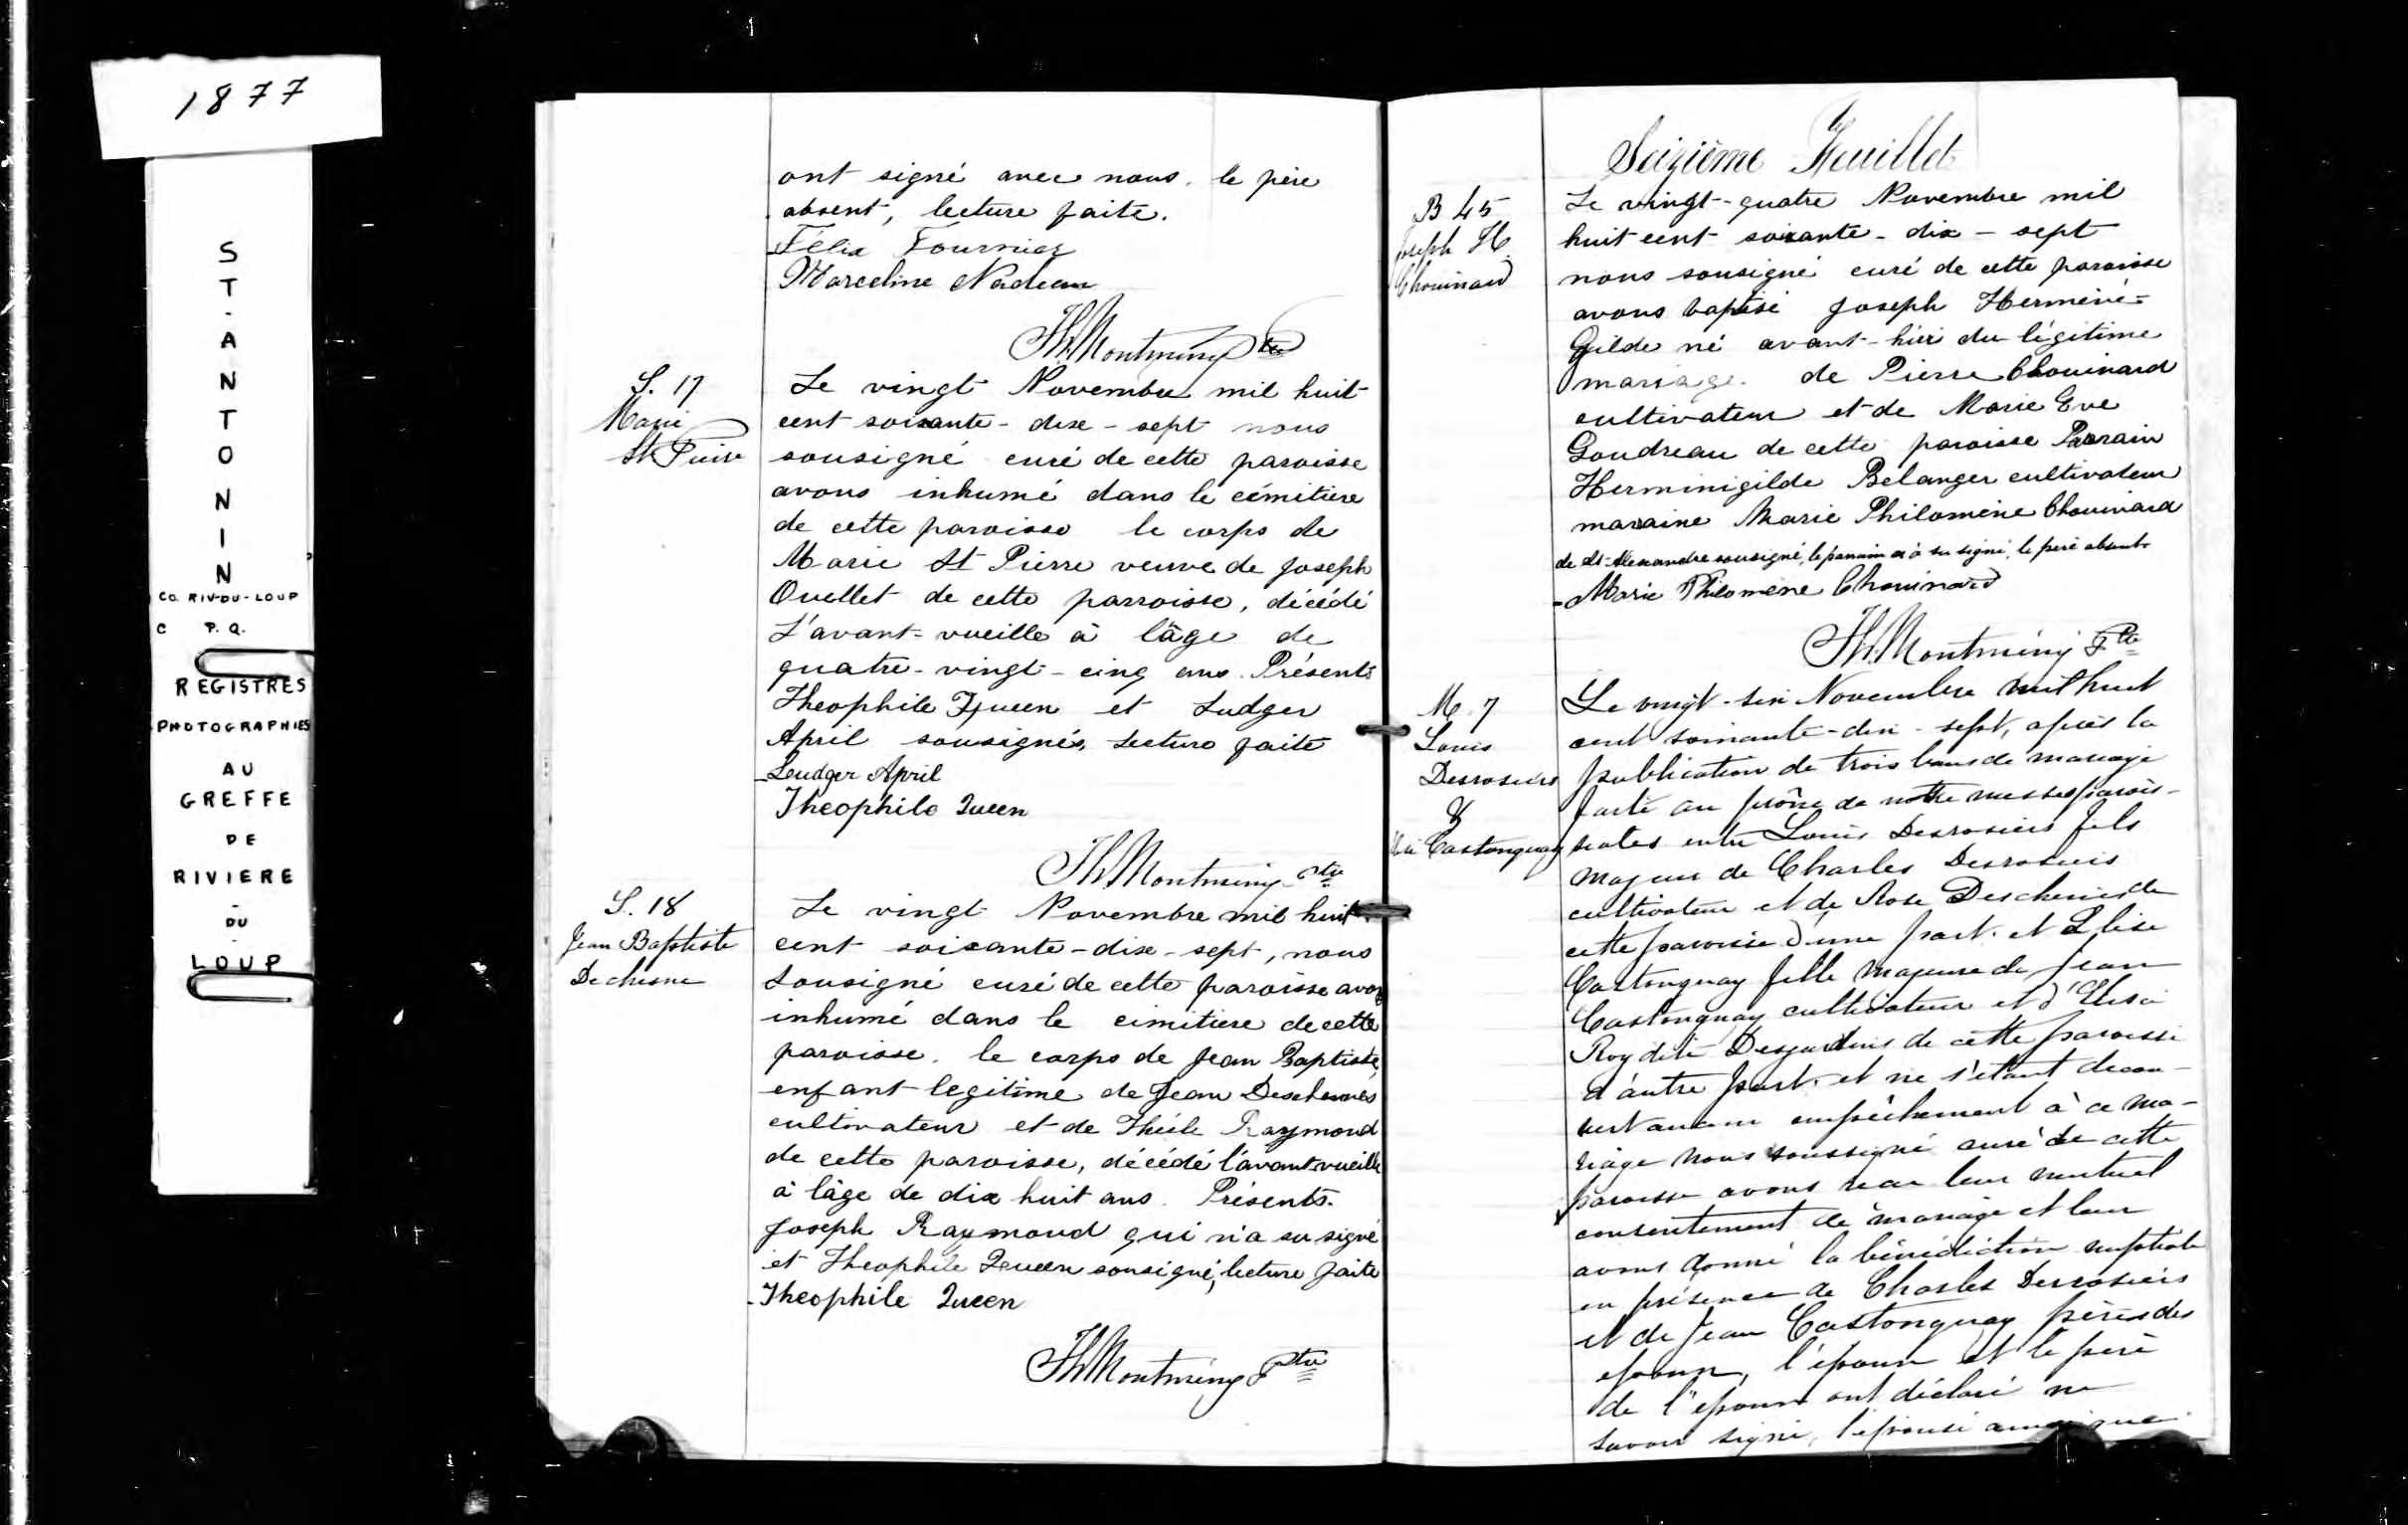 1877
ST-ANTONIN
CO. RIV-DU-LOUP
C P.Q.
REGISTRES
PHOTOGRAPHIES
AU
GREFFE
DE
RIVIERE
-
DU
-
LOUP
ont signé avec nous, le père
absent, lecture faite.
Félix Fournier
Marceline Nadeau
Th. Montminy Ptre
S. 17
Marie
St Pierre
Le vingt Novembre mil huit
cent soixante-dix-sept nous
sousigné curé de cette paroisse
avons inhumé dans le cémitière
de cette paroisse le corps de
Marie St Pierre veuve de Joseph
Ouellet de cette parroisse, décédé
L'avant-vueille à l'âge de
quatre-vingt-cinq ans. Présents
Theophile Queen et Ludger
April sousignés, Lecture faite
Leudger April
Theophile Queen
Th. Montminy Ptre
S. 18
Jean Baptiste
Dechesne
Le vingt Novembre mil huit
cent soixante-dix-sept, nous
sousigné curé de cette paroisse avons
inhumé dans le cimitiere de cette
paroisse, le corps de Jean Baptiste,
enfant legitime de Jean Deschennes
cultivateur et de Raymond
de cette paroisse, décédé l'avant vueille
à l'âge de dix huit ans. Présents.
Joseph Raymond qui n'a su signé
et Theophile Queen sousigné, lecture faite
Theophile Queen
Th. Montminy Ptre
Seizième Feuillet
B 45
Joseph H.
Chouinard
Le vingt-quatre Novembre mil
huit cent soixante-dix-sept
nous sousigné curé de cette paroisse
avons baptisé Joseph Herméné=
Gilde né avant-hier du légitime
mariage de Pierre Chouinard
cultivateur et de Marie Eve
Goudreau de cette paroisse Parrain
Herminigilde Belanger cultivateur
maraine Marie Philomène Chouinard
de St-Alexandre sousigné, le parrain n'a su signé, le père absent.
Marie Philomène Chouinard
Th. Montminy Ptre
M. 7
Louis
Desrosiers
&
Castonguay
Le vingt-six Novembre mil huit
cent soixante-dix-sept, après la
publication de trois bans de mariage
faite au prône de notre messe parois-
siales entre Louis Desrosiers fils
majeur de Charles Desrosiers
cultivateur et de Rose Deschenes de
cette paroisse d'une part. et Elise
Castonguay fille majeure de Jean
Castonguay cultivateur et d'Elise
Roy dite Desjardins de cette paroisse
d'autre part. et ne s'étant decou-
vert aucun empêchement à ce ma-
riage nous soussigné curé de cette
paroisse avons recu leur mutuel
consentement de mariage et leur
avons donné la bénédiction nuptiale
en présence de Charles Desrosiers
et de Jean Castonguay pères des
epoux, l'époux et le père
de l'epoux ont déclaré ne
savoir signé, l'épouse ainsi que